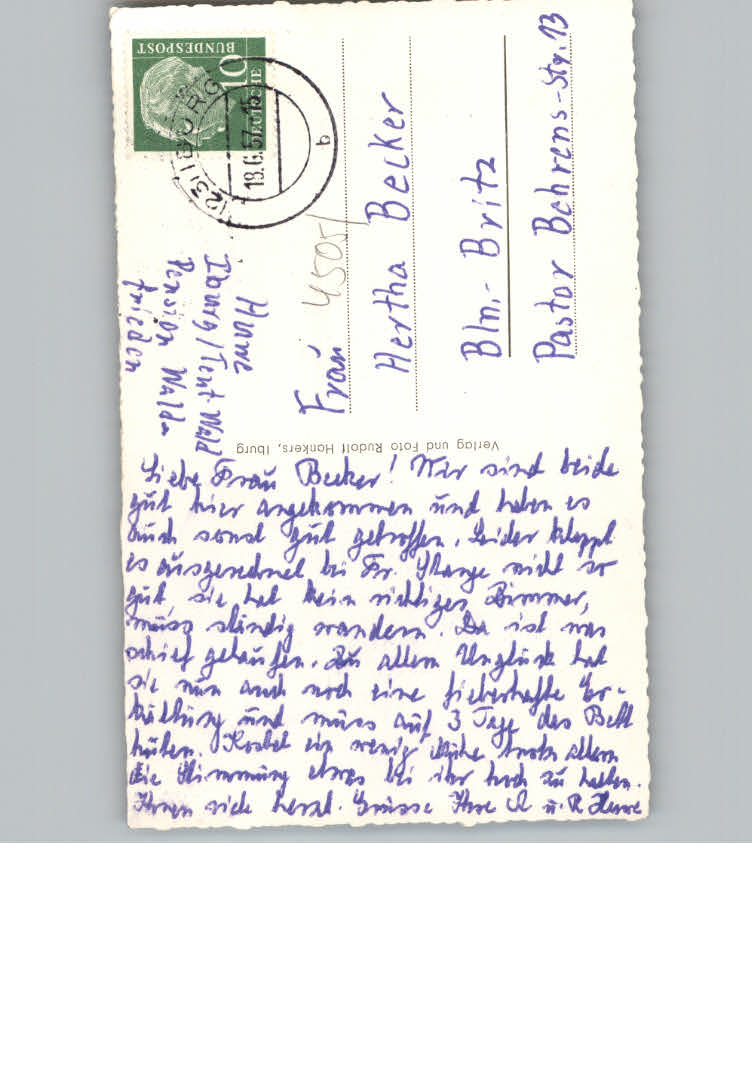 DEUTSCHE
BUNDESPOST
10
(23) IBURG
18.6.57.-16
b
Iburg/Teut. Wald
Pension Wald-
frieden
4505/
Frau
Hertha Becker
Bln.-Britz
Pastor Behrens-Str. 13
Verlag und Foto Rudolf Honkers, Iburg
Liebe Frau Becker! Wir sind beide
gut hier angekommen und haben es
auch sonst gut getroffen. Leider klappt
es ausgerechnet bei Fr. Stange nicht so
gut, sie hat kein richtiges Zimmer,
muss ständig wandern. Da ist was
schief gelaufen. Zu allem Unglück hat
sie nun auch noch eine fieberhafte Er-
kältung und muss auf 3 Tage das Bett
hüten. Kostet ein wenig Mühe trotz allem
die Stimmung etwas bei ihr hoch zu halten.
Ihnen viele herzl. Grüsse Ihre A u. R